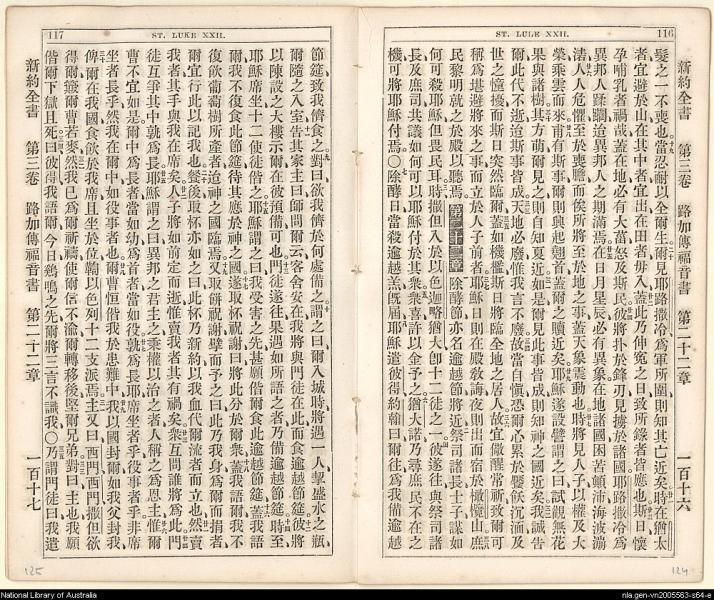 116
ST. LUKE XXII.
新約全書 第三卷 路加傳福音書 第二十二章 一百十六
髮之一不喪也當忍耐以全爾生爾見耶路撒冷爲軍所圍則知其亡近矣時在猶太
者宜避於山在其中者宜出在田者毋入蓋此乃伸寃之日致所錄者皆應也斯日懷
孕哺乳者禍哉蓋在地必有大菑怒及斯民彼將扑於鋒刃見擄於諸國耶路撒冷爲
異邦人蹂躪迨異邦人之期滿焉在日月星辰必有異象在地諸國困苦頓沛海波澎
人人危懼至於喪膽而俟所將至於地之事蓋天象震動也時將見人子以權及大
榮乘雲而來甫有斯事則興起翹首蓋爾之贖近矣耶穌遂設譬謂之曰試觀無花
果與諸樹其方萌爾見之則自知夏近如是爾見此事皆成則知神之國近矣我誠告
爾此代不逝迨斯事皆成天地必廢惟我言不廢故當自愼恐爾心累於饕飫沉湎及
世之憧擾而斯日突然臨爾蓋如機檻斯日將臨全地之居人故宜儆醒常祈致爾可
稱爲堪避將來之事而立於人子前者耶穌日則在殿敎誨夜則出而宿於橄欖山庶
民黎明就之於殿以聽焉 第二十二章 除酵節亦名逾越節將近祭司諸長士子謀如
何可殺耶穌但畏民耳時撒但入於以色迦略猶大卽十二徒之一彼遂往與祭司諸
長及庶司共議如何可以耶穌付於其衆衆喜許以金予之猶大諾乃尋庶民不在之
機可將耶穌付焉○除酵日當殺逾越羔旣屆耶穌遣彼得約翰曰爾往爲我備逾越
124
117
ST. LUKE XXII.
節筵致我儕食之對曰欲我儕於何處備之謂之曰爾入城時將遇一人挈盛水之瓶
爾隨之入室告其家主曰師問爾云客舍安在我將與門徒在此而食逾越節筵彼將
以陳設之大樓示爾在彼預備可也門徒遂往果遇如所語之者乃備逾越節筵時至
耶穌席坐十二使徒偕之耶穌謂之曰我受害之先甚願偕爾食此逾越節筵蓋我語
爾我不復食此節筵待其應於神之國遂取杯祝謝曰將此分於爾衆蓋我語爾我不
復飲葡萄樹所產者迨神之國臨焉又取餅祝謝擘而予之曰此乃我身爲爾而捐者
爾宜行此以記我也餐後取杯亦如之曰此杯乃新約以我血代爾流者而立也然賣
我者其手與我在席矣人子將如前定而逝惟賣我者其有禍矣衆互問誰將爲此門
徒互爭其中孰爲長耶穌謂之曰異邦之君主之秉權以治之者人稱之爲恩主惟爾
曹不宜如是爾中爲長者當如幼爲首者當如役孰爲長耶席坐者乎役事者乎非席
坐者長乎然我在爾中如役事者也爾曹恒偕我於患難中我以國封爾如我父封我
俾爾在我國食飲於我席且坐於位鞫以色列十二支派焉主又曰西門西門撒但欲
得爾簸爾曹若麥然我已爲爾祈禱使爾信不渝爾轉移後堅爾兄弟對曰主也我願
偕爾下獄且死曰彼得我語爾今日鷄鳴之先爾將三言不識我○乃謂門徒曰我遣
新約全書 第三卷 路加傳福音書 第二十二章 一百十七
125
National Library of Australia
nla.gen-vn2005563-s64-e